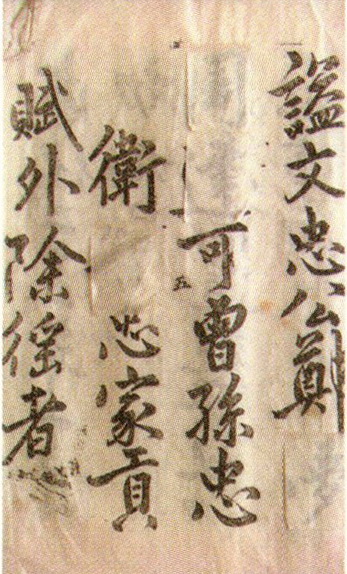 諡文忠公鄭
五
可曾孫忠
衛 家貢
賦外除徭者